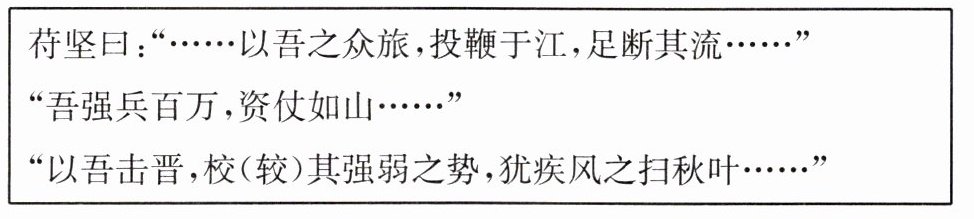 苻坚曰：“……以吾之众旅，投鞭于江，足断其流……”
“吾强兵百万，资仗如山……”
“以吾击晋，校（较）其强弱之势，犹疾风之扫秋叶……”